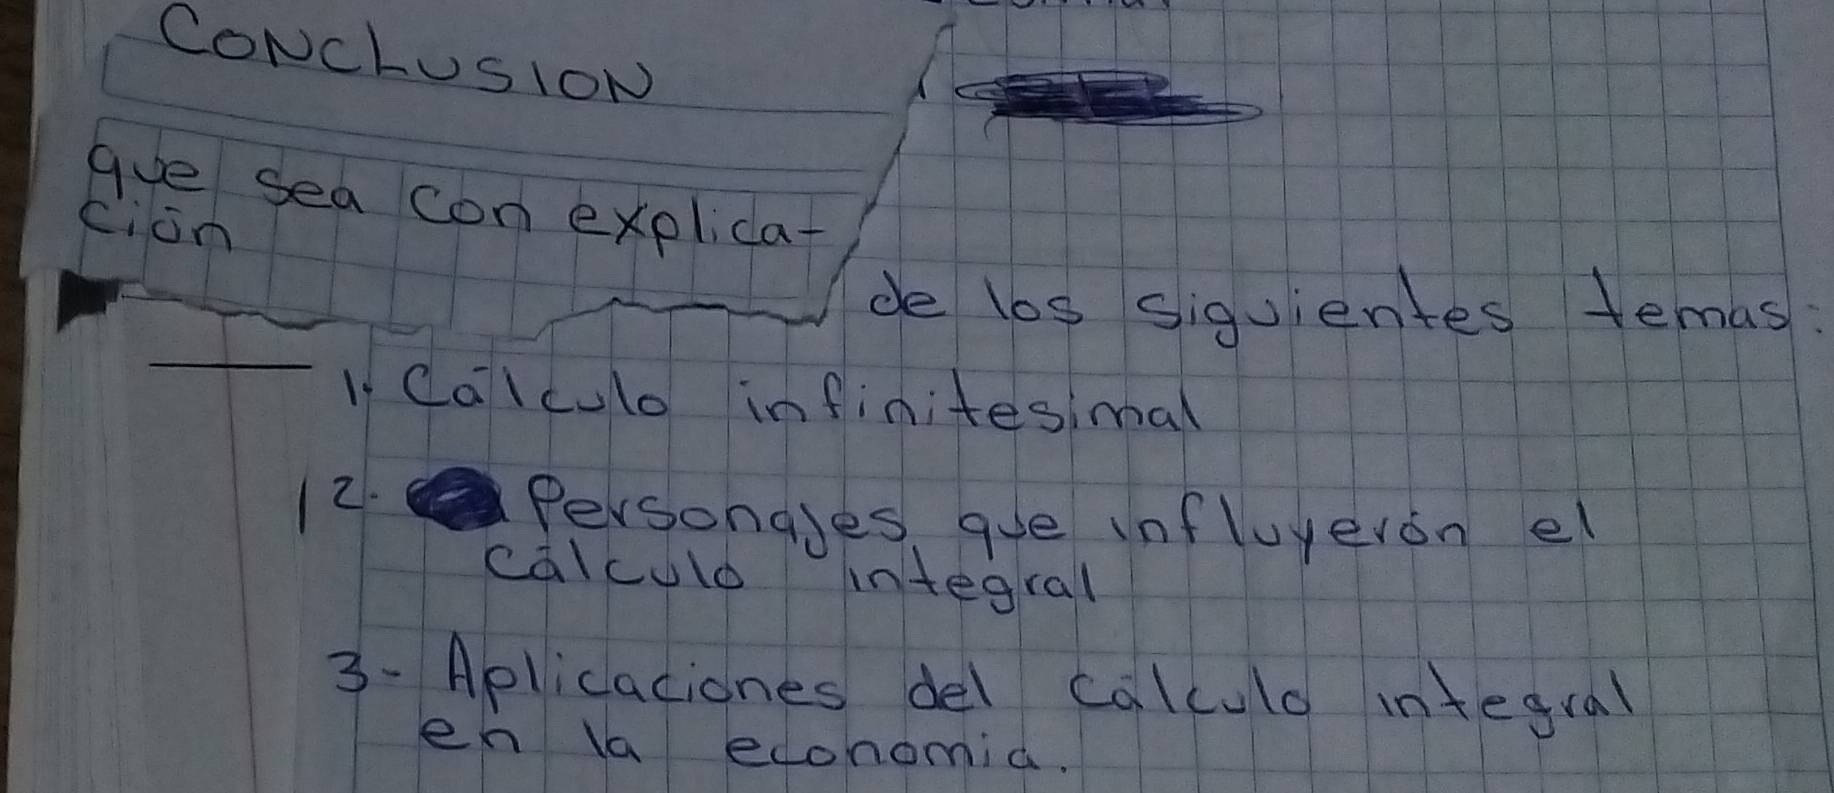 CONCLUSION
que sea con explica-
ción
de los siguientes temas:
1. Cálculo infinitesimal
2. Personajes que influyerón el
cálculo integral
3- Aplicaciones del cálculo integral
en la economia.